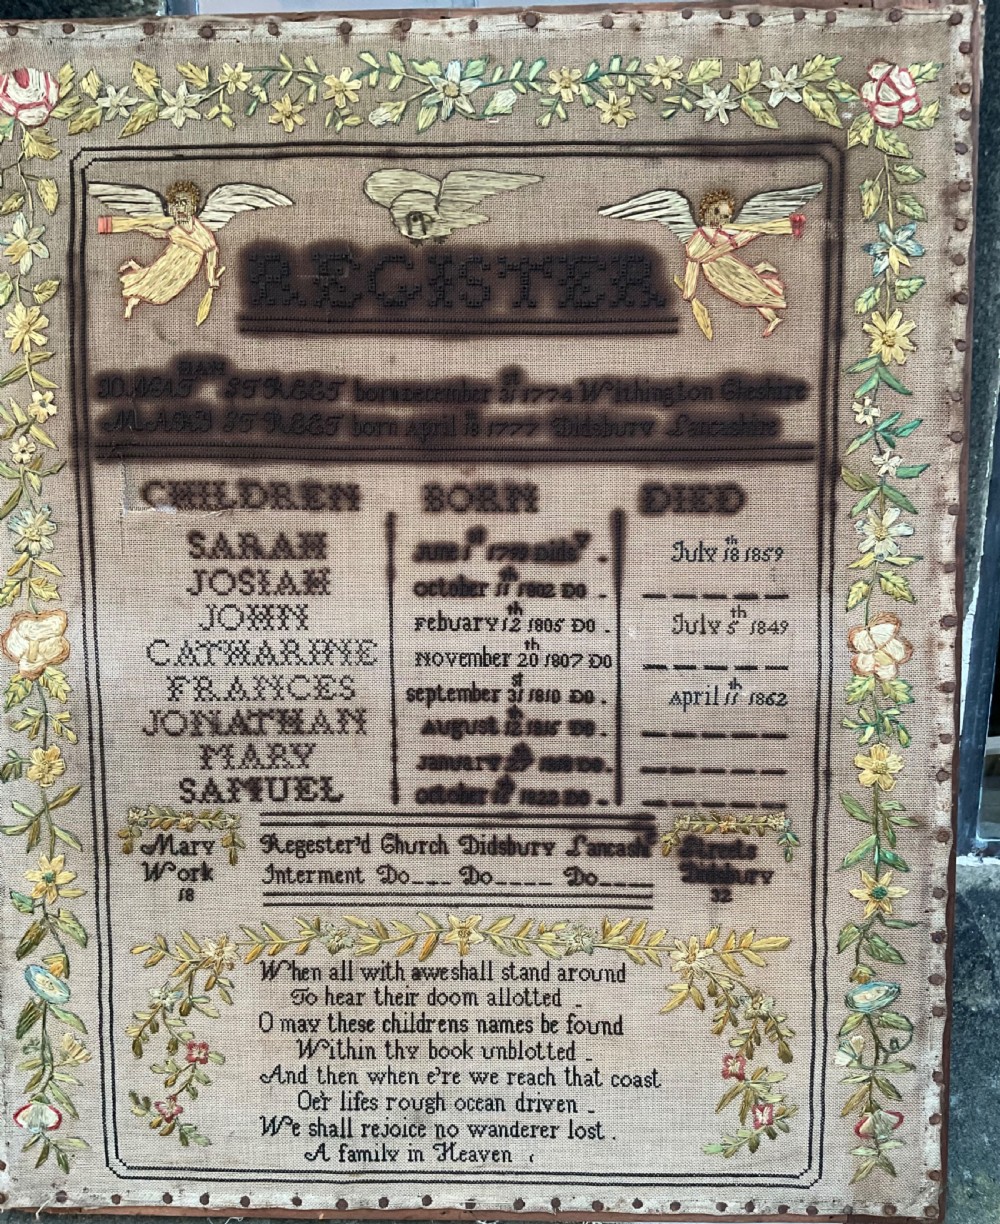 REGISTER
JONATHAN STREET born December 31st 1774 Withington Cheshire
MARY STREET born April 18th 1777 Didsbury Lancashire
CHILDREN BORN DIED
SARAH June 1st 1799 Dids July 18th 1859
JOSIAH october 11th 1802 DO
JOHN Febuary 12th 1805 DO . July 5th 1849
CATHARINE November 20th 1807 DO
FRANCES september 31st 1810 DO . April 11th 1862
JONATHAN August 12th 1815 DO .
MARY January DO .
SAMUEL october 18th 1822 DO
Mary Regester'd Church Didsbury Lancash Streets
Work Interment Do___ Do____ Do____ Didsbury
18 32
When all with awe shall stand around
To hear their doom allotted _
O may these childrens names be found
Within thy book unblotted _
And then when e're we reach that coast
Oe'r lifes rough ocean driven _
We shall rejoice no wanderer lost .
A family in Heaven